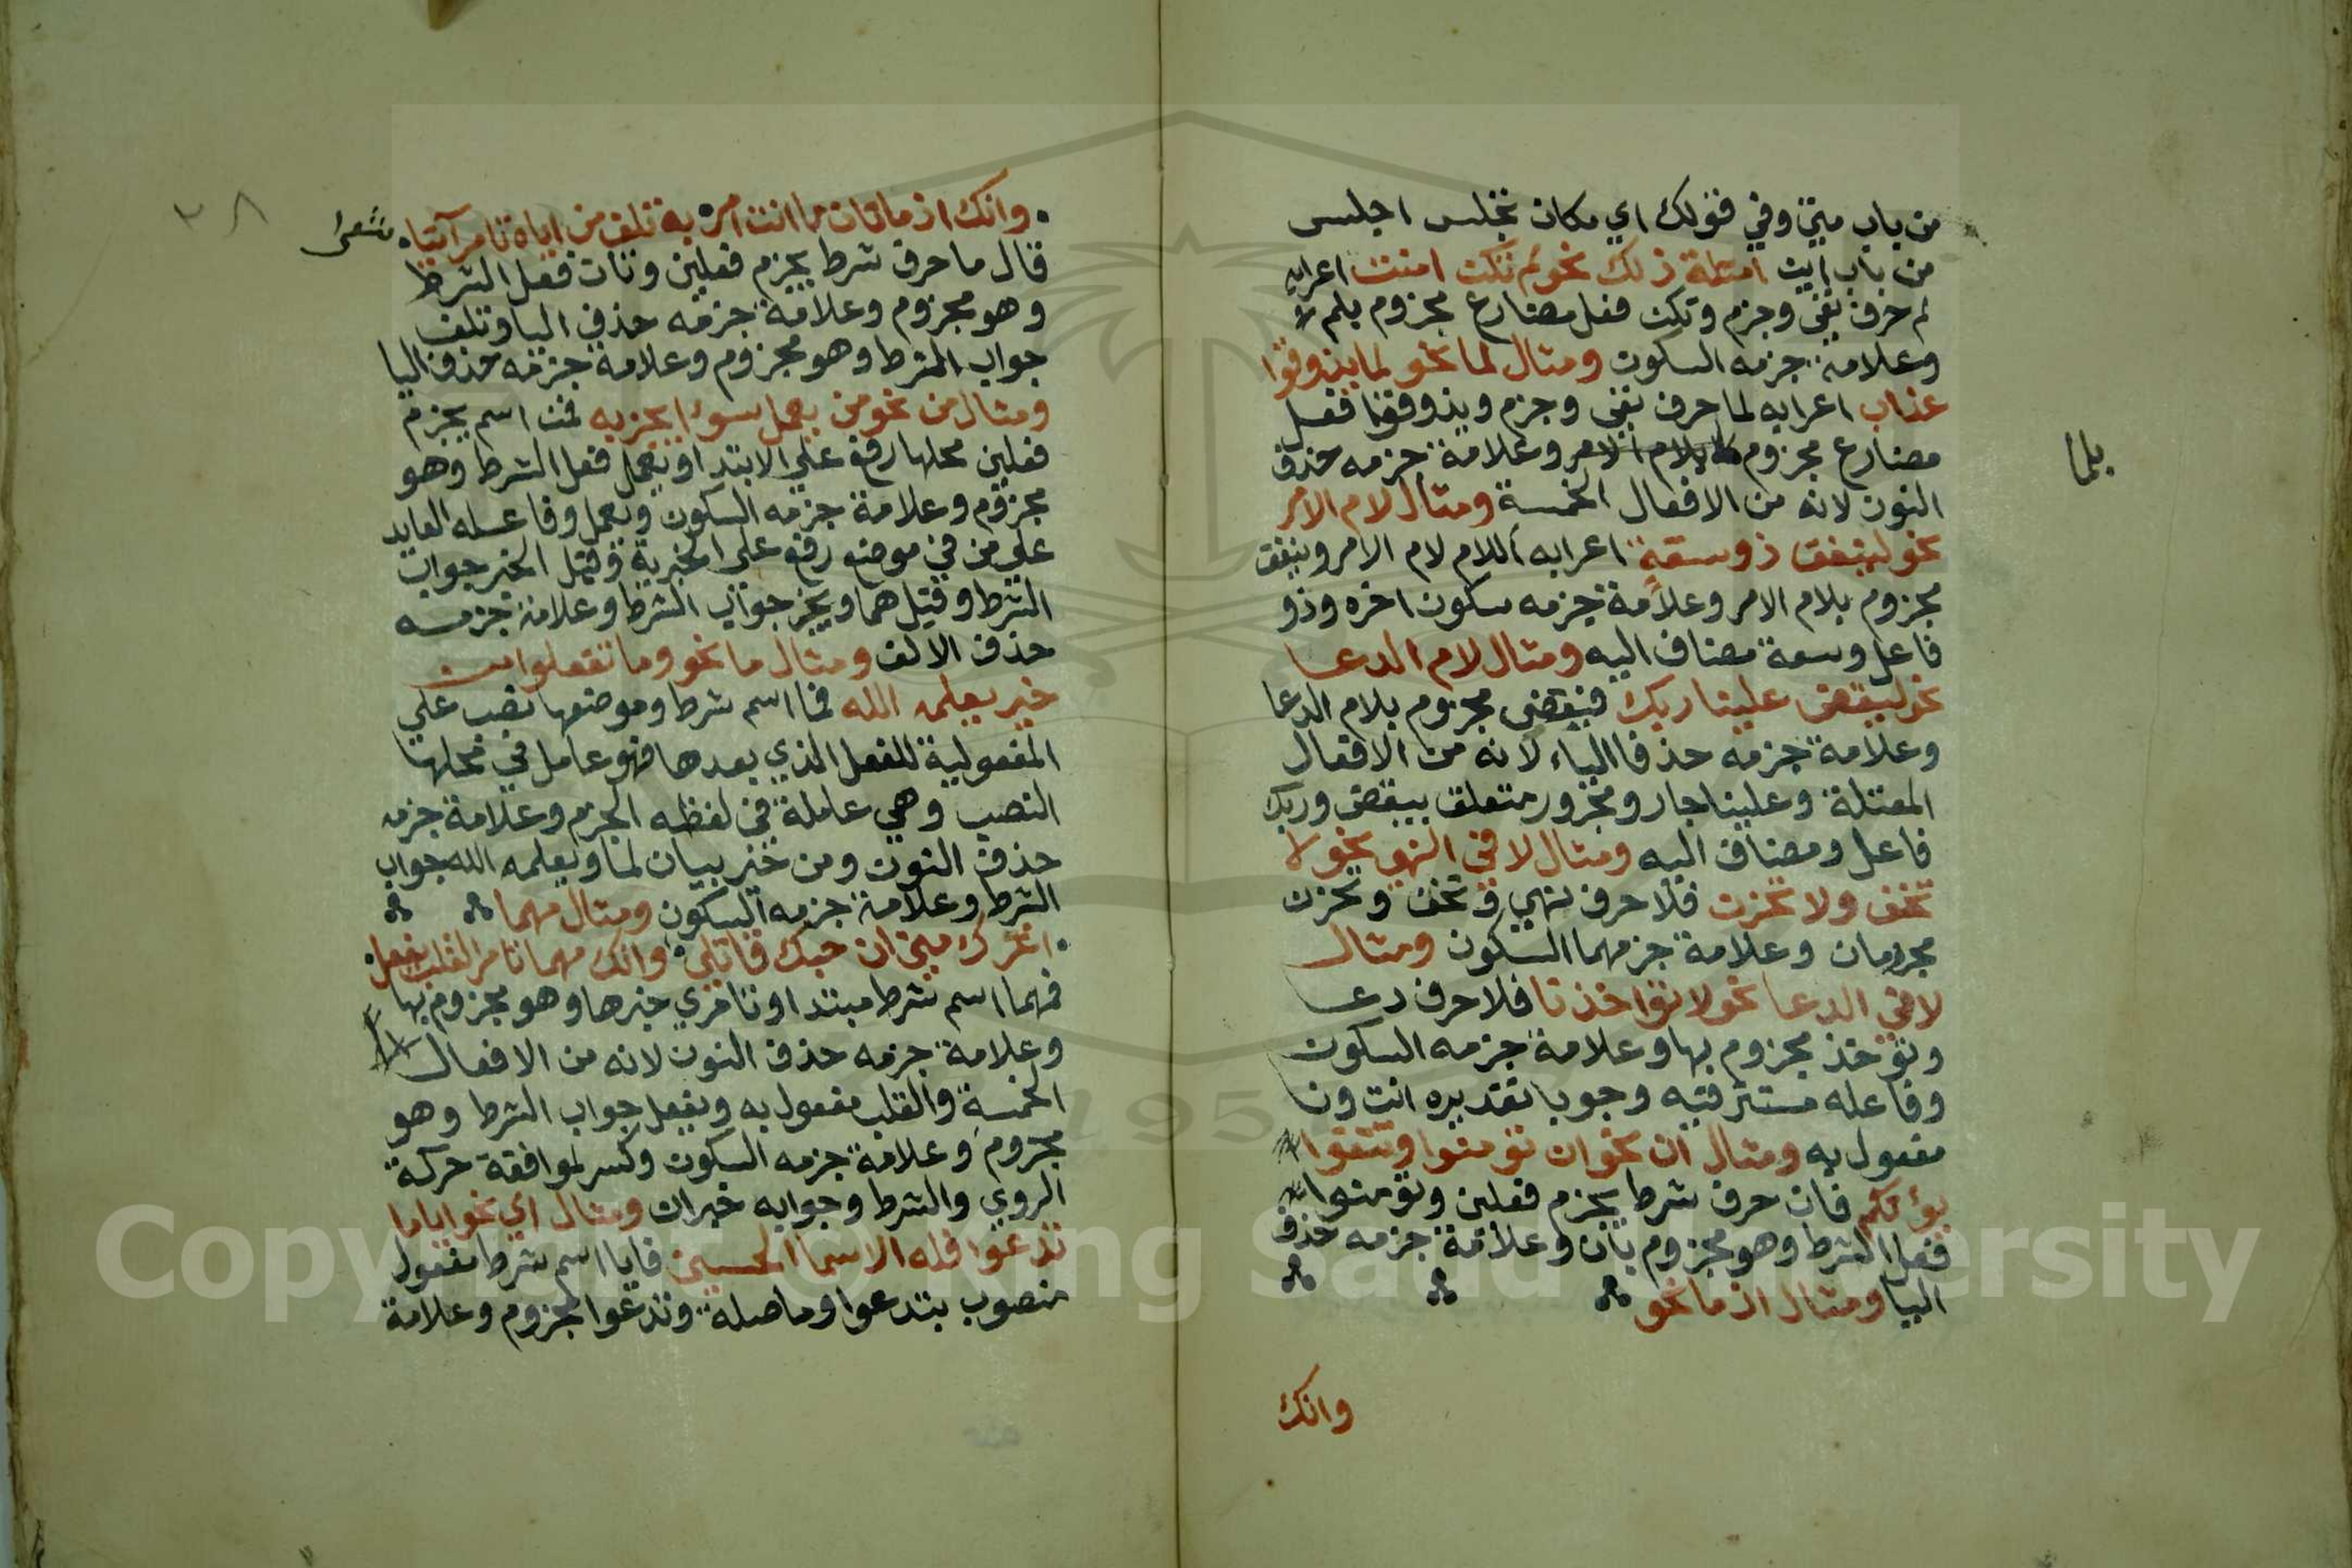 من باب متي وفي قولك اي مكان تجلس اجلس
من باب اين امثلة ذلك نحو لم تكن امنت اعرابه
لم حرف نفي وجزم وتكن فعل مضارع مجزوم بلم
وعلامة جزمه السكون ومثال لما نحو لما يذوقوا
عذاب اعرابه لما حرف نفي وجزم ويذوقوا فعل
مضارع مجزوم بلام الامر وعلامة جزمه حذف
بلما
النون لانه من الافعال الخمسة ومثال لام الامر
نحو لينفق ذو سعة اعرابه اللام لام الامر وينفق
مجزوم بلام الامر وعلامة جزمه سكون اخره وذو
فاعل وسعة مضاف اليه ومثال لام الدعا
نحو ليقض علينا ربك فيقضي مجزوم بلام الدعا
وعلامة جزمه حذف الياء لانه من الافعال
المعتلة وعلينا جار ومجرور متعلق بيقض وربك
فاعل ومضاف اليه ومثال لا في النهي نحو لا
تخف ولا تحزن فلا حرف نهي وتخف وتحزن
مجزومان وعلامة جزمهما السكون ومثال
لا في الدعا نحو لا تؤاخذنا فلا حرف دعا
وتؤخذ مجزوم بها وعلامة جزمه السكون
وفاعله مستتر فيه وجوبا تقديره انت ونا
مفعول به ومثال ان نحو ان تؤمنوا وتتقوا
يؤتكم فان حرف شرط يجزم فعلين وتؤمنوا
فعل الشرط وهو مجزوم بان وعلامة جزمه حذف
اليا ومثال اذ ما نحو
وانك
وانك اذ ما تات ما انت امر به تلف من اياه تامر آتيا
شعر
٣٨
قال ما حرف شرط يجزم فعلين وتات فعل الشرط
وهو مجزوم وعلامة جزمه حذف اليا وتلف
جواب الشرط وهو مجزوم وعلامة جزمه حذف اليا
ومثال من نحو من يعمل سوءا يجز به فمن اسم يجزم
فعلين محلها رفع علي الابتدا ويعمل فعل الشرط وهو
مجزوم وعلامة جزمه السكون ويعمل وفاعله العايد
علي من في موضع رفع علي الخبرية وقيل الخبر جواب
الشرط وقيل هما ويجز جواب الشرط وعلامة جزمه
حذف الالف ومثال ما نحو وما تفعلوا من
خير يعلمه الله فما اسم شرط وموضعها نصب علي
المفعولية للفعل الذي بعدها فهو عامل في محلها
النصب وهي عاملة في لفظه الجزم وعلامة جزمه
حذف النون ومن خير بيان لما ويعلمه الله جواب
الشرط وعلامة جزمه السكون ومثال مهما
اغرك مني ان حبك قاتلي وانك مهما تامر القلب يفعل
فمهما اسم شرط مبتدا وتامري خبرها وهو مجزوم بها
وعلامة جزمه حذف النون لانه من الافعال
الخمسة والقلب مفعول به ويفعل جواب الشرط وهو
مجزوم وعلامة جزمه السكون وكسر لموافقة حركة
الروي والشرط وجوابه خبران ومثال اي نحو ايا ما
تدعوا فله الاسما الحسني فايا اسم شرط مفعول
منصوب بتدعوا وما صلة وتدعوا مجزوم وعلامة
Copyright © King Saud University
1957